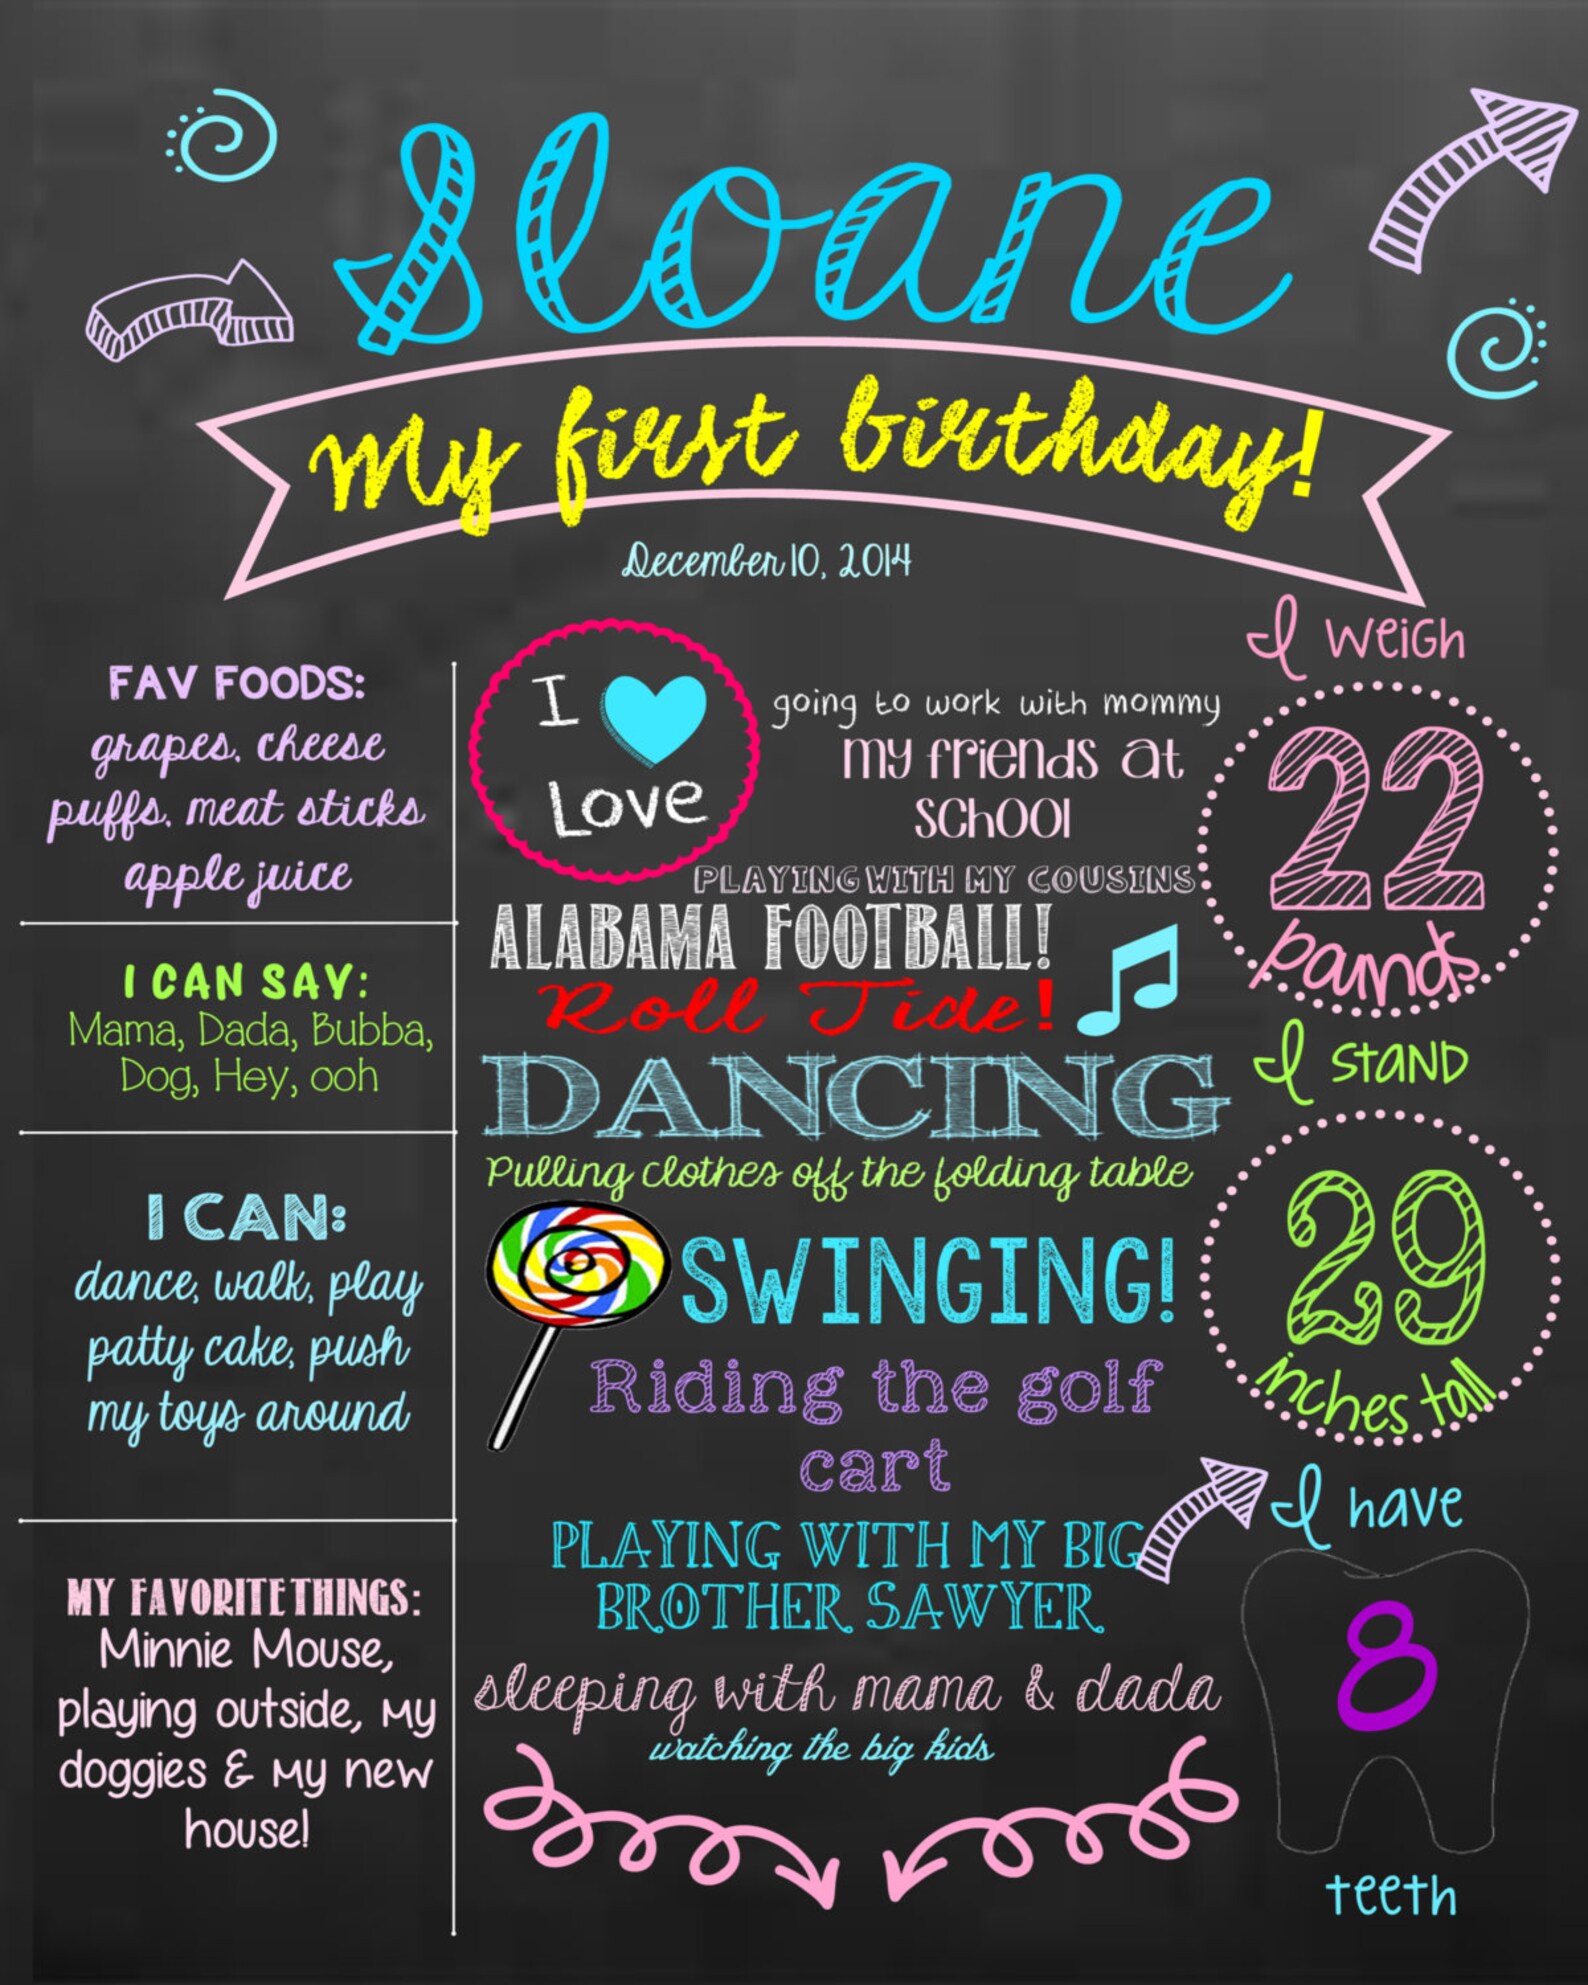 Sloane
My first birthday!
December 10, 2014
FAV FOODS:
grapes, cheese
puffs, meat sticks
apple juice
I CAN SAY:
Mama, Dada, Bubba,
Dog, Hey, ooh
I CAN:
dance, walk, play
patty cake, push
my toys around
MY FAVORITE THINGS:
Minnie Mouse,
playing outside, my
doggies & my new
house!
I
Love
going to work with mommy
my friends at
school
PLAYING WITH MY COUSINS
ALABAMA FOOTBALL!
Roll Tide!
DANCING
Pulling clothes off the folding table
SWINGING!
Riding the golf
cart
PLAYING WITH MY BIG
BROTHER SAWYER
sleeping with mama & dada
watching the big kids
I weigh
22
pounds
I stand
29
inches tall
I have
8
teeth